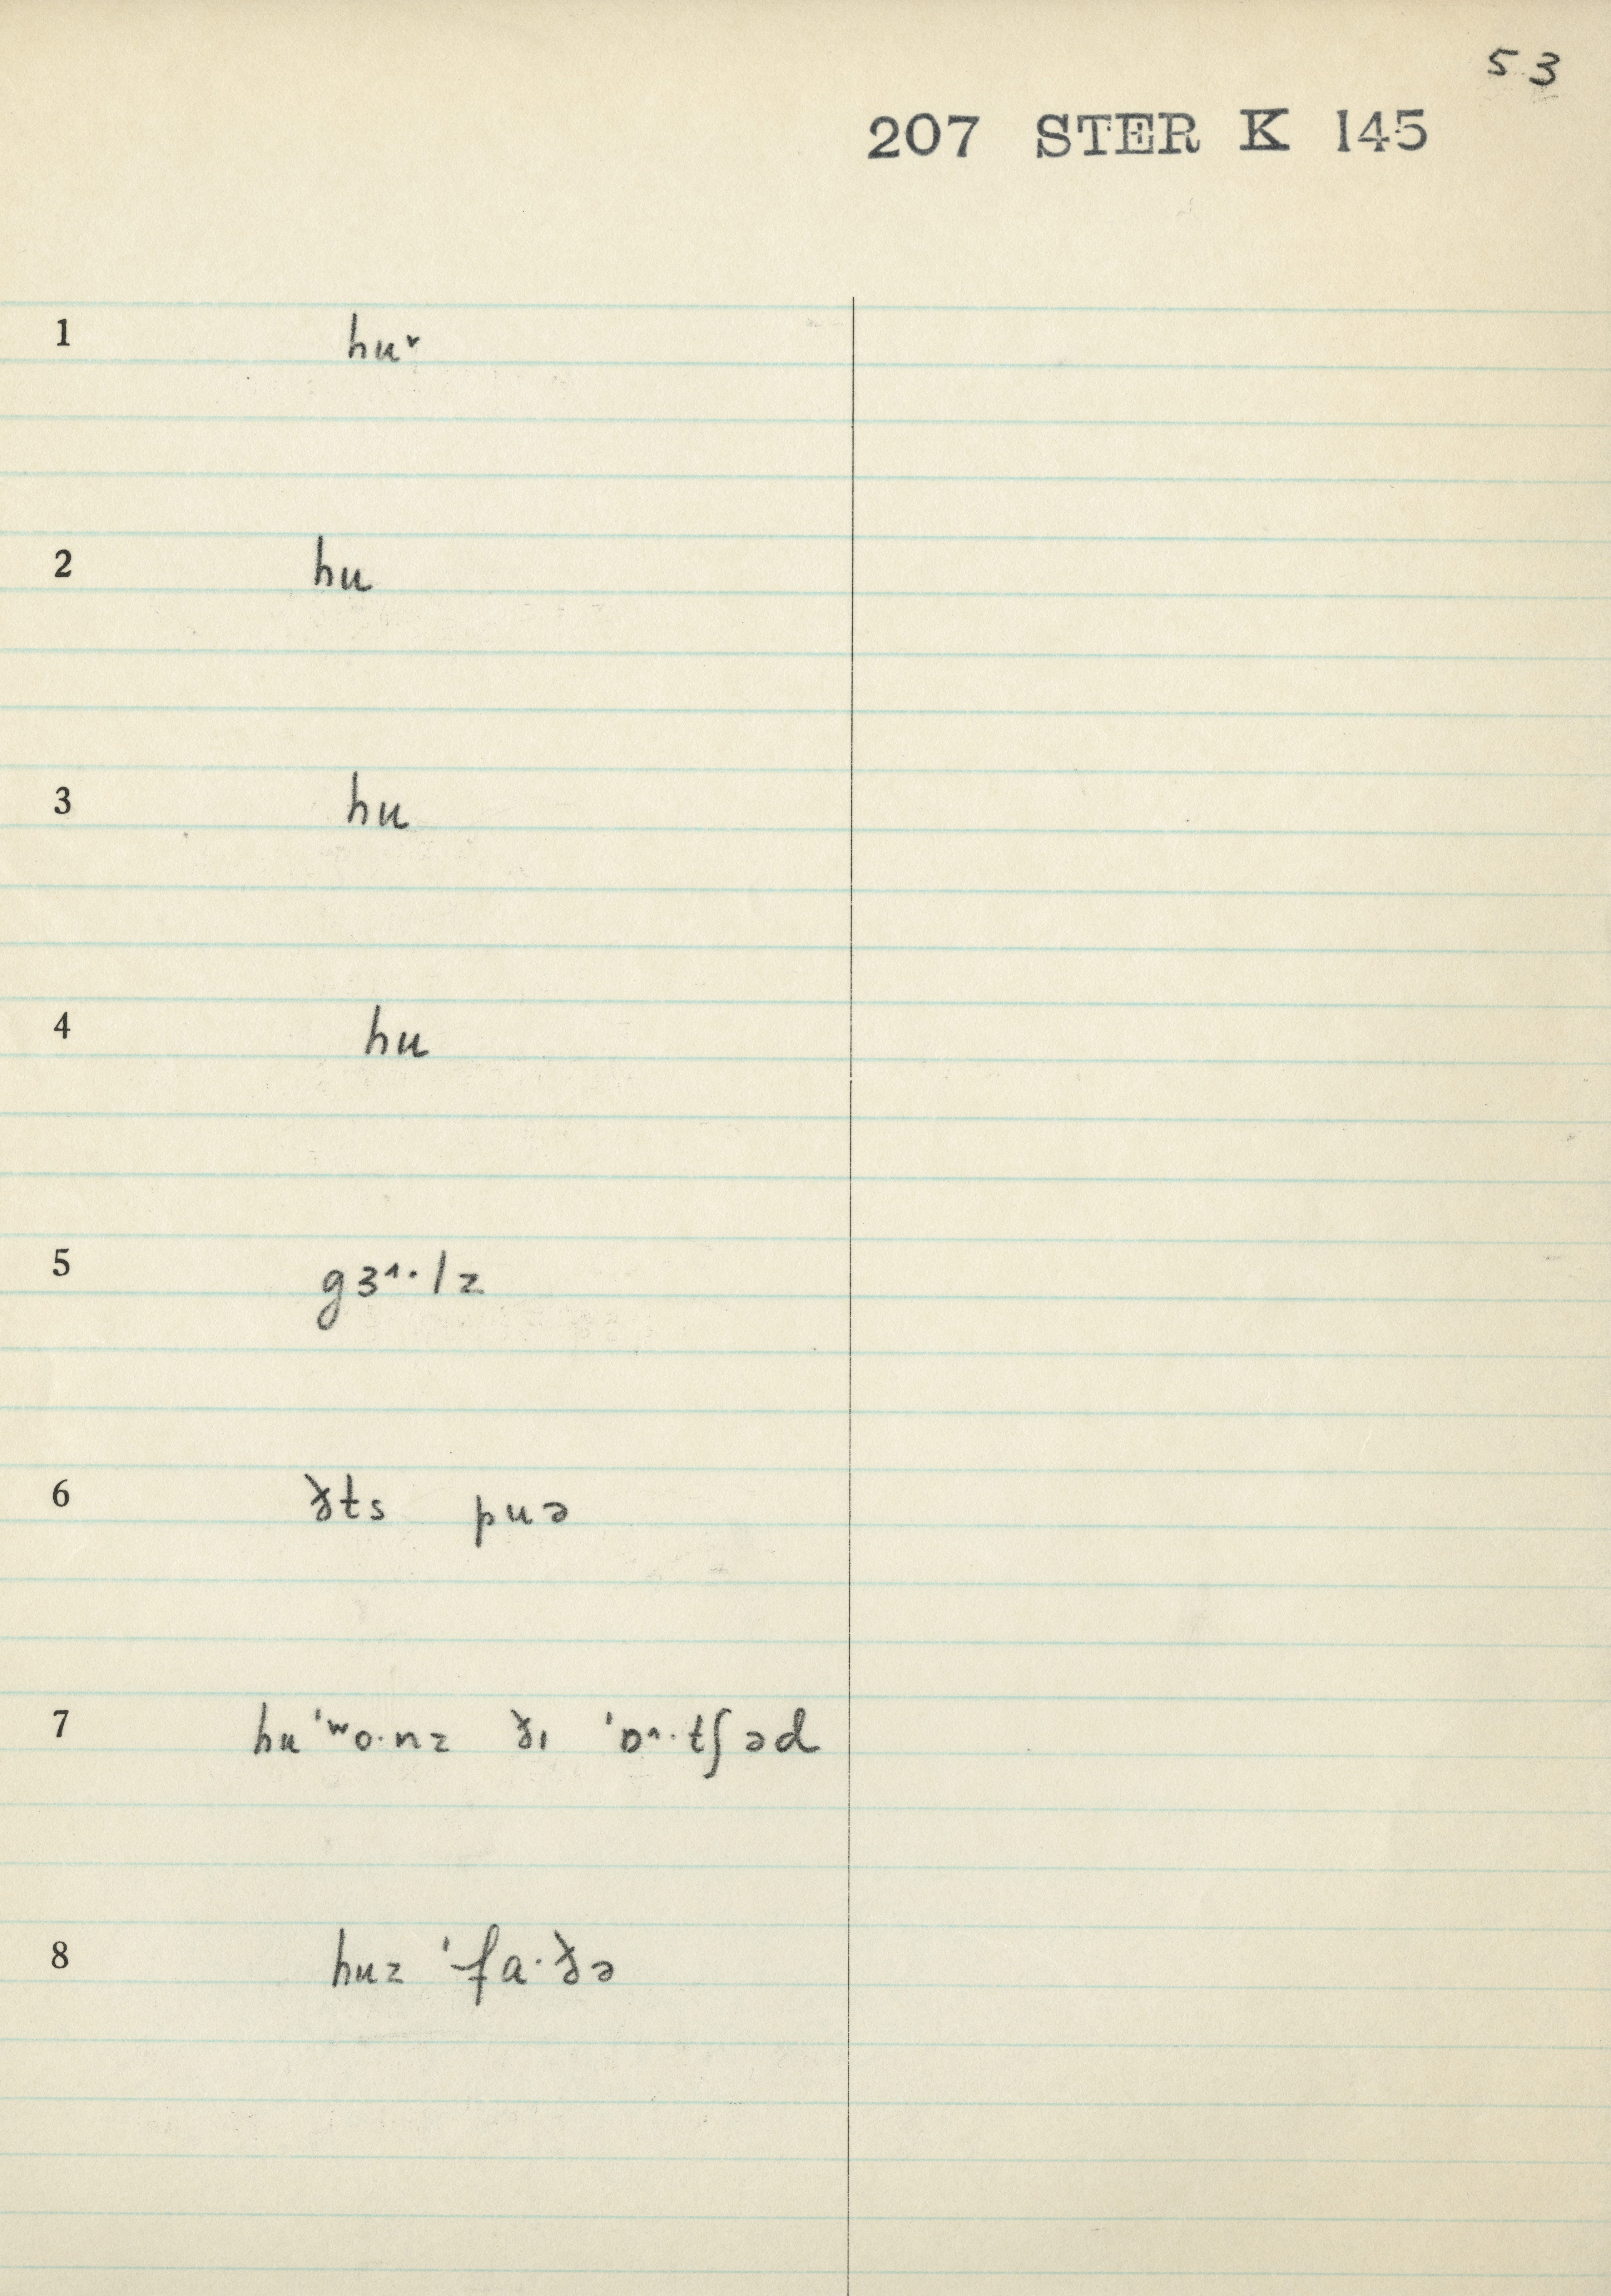 53
207 STER K 145
1 hu˅
2 hu
3 hu
4 hu
5 gɜ˄·lz
6 ðts puə
7 huˈʷo·nz ðɪ ˈɒ˄·tʃəd
8 huz ˈfa·ðə